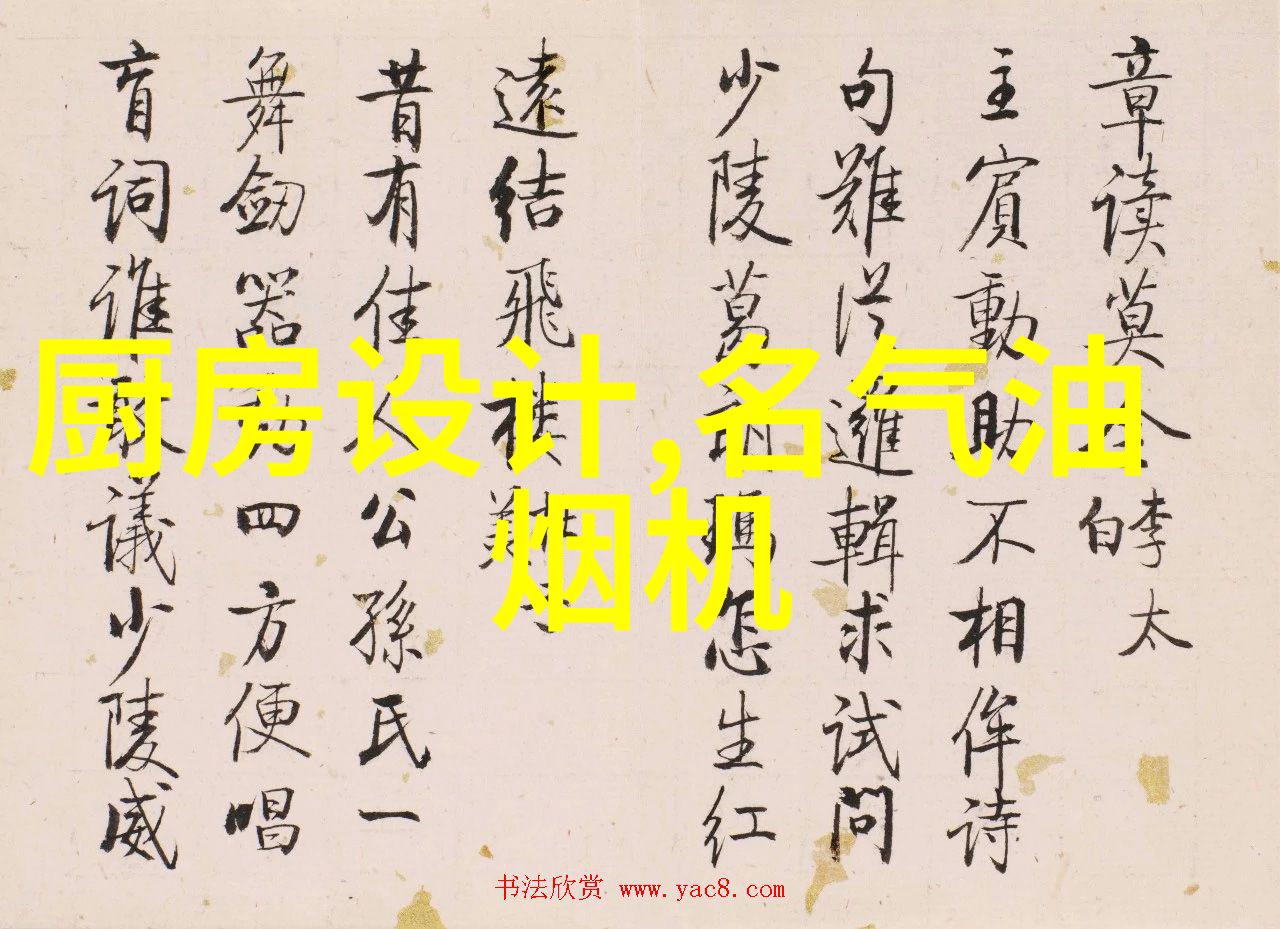 章读莫
李太
白
主賓動助不相侔诗
句難從邏輯求试問
少陵葛怎生红
遠结飛樓難
昔有佳人公孫氏一
舞劒器動四方便唱
盲词谁敢議少陵威
厨房设计,名气油
烟机
书法欣赏 www.yac8.com